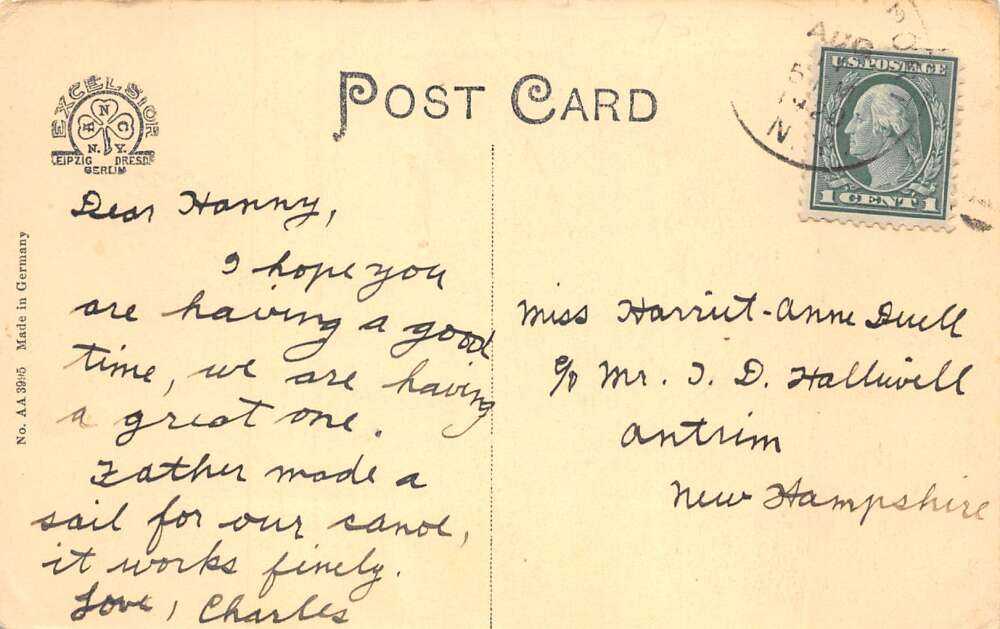 EXCELSIOR
A N C
N.Y.
LEIPZIG DRESD.
BERLIN
POST CARD
AUG
5
N.
U.S. POSTAGE
1 CENT 1
No. AA 3995 Made in Germany
Dear Hanny,
I hope you
are having a good
time, we are having
a great one.
Father made a
sail for our canoe,
it works finely.
Love, Charles
Miss Harriet-Anne Duell
c/o Mr. I. D. Halliwell
Antrim
New Hampshire